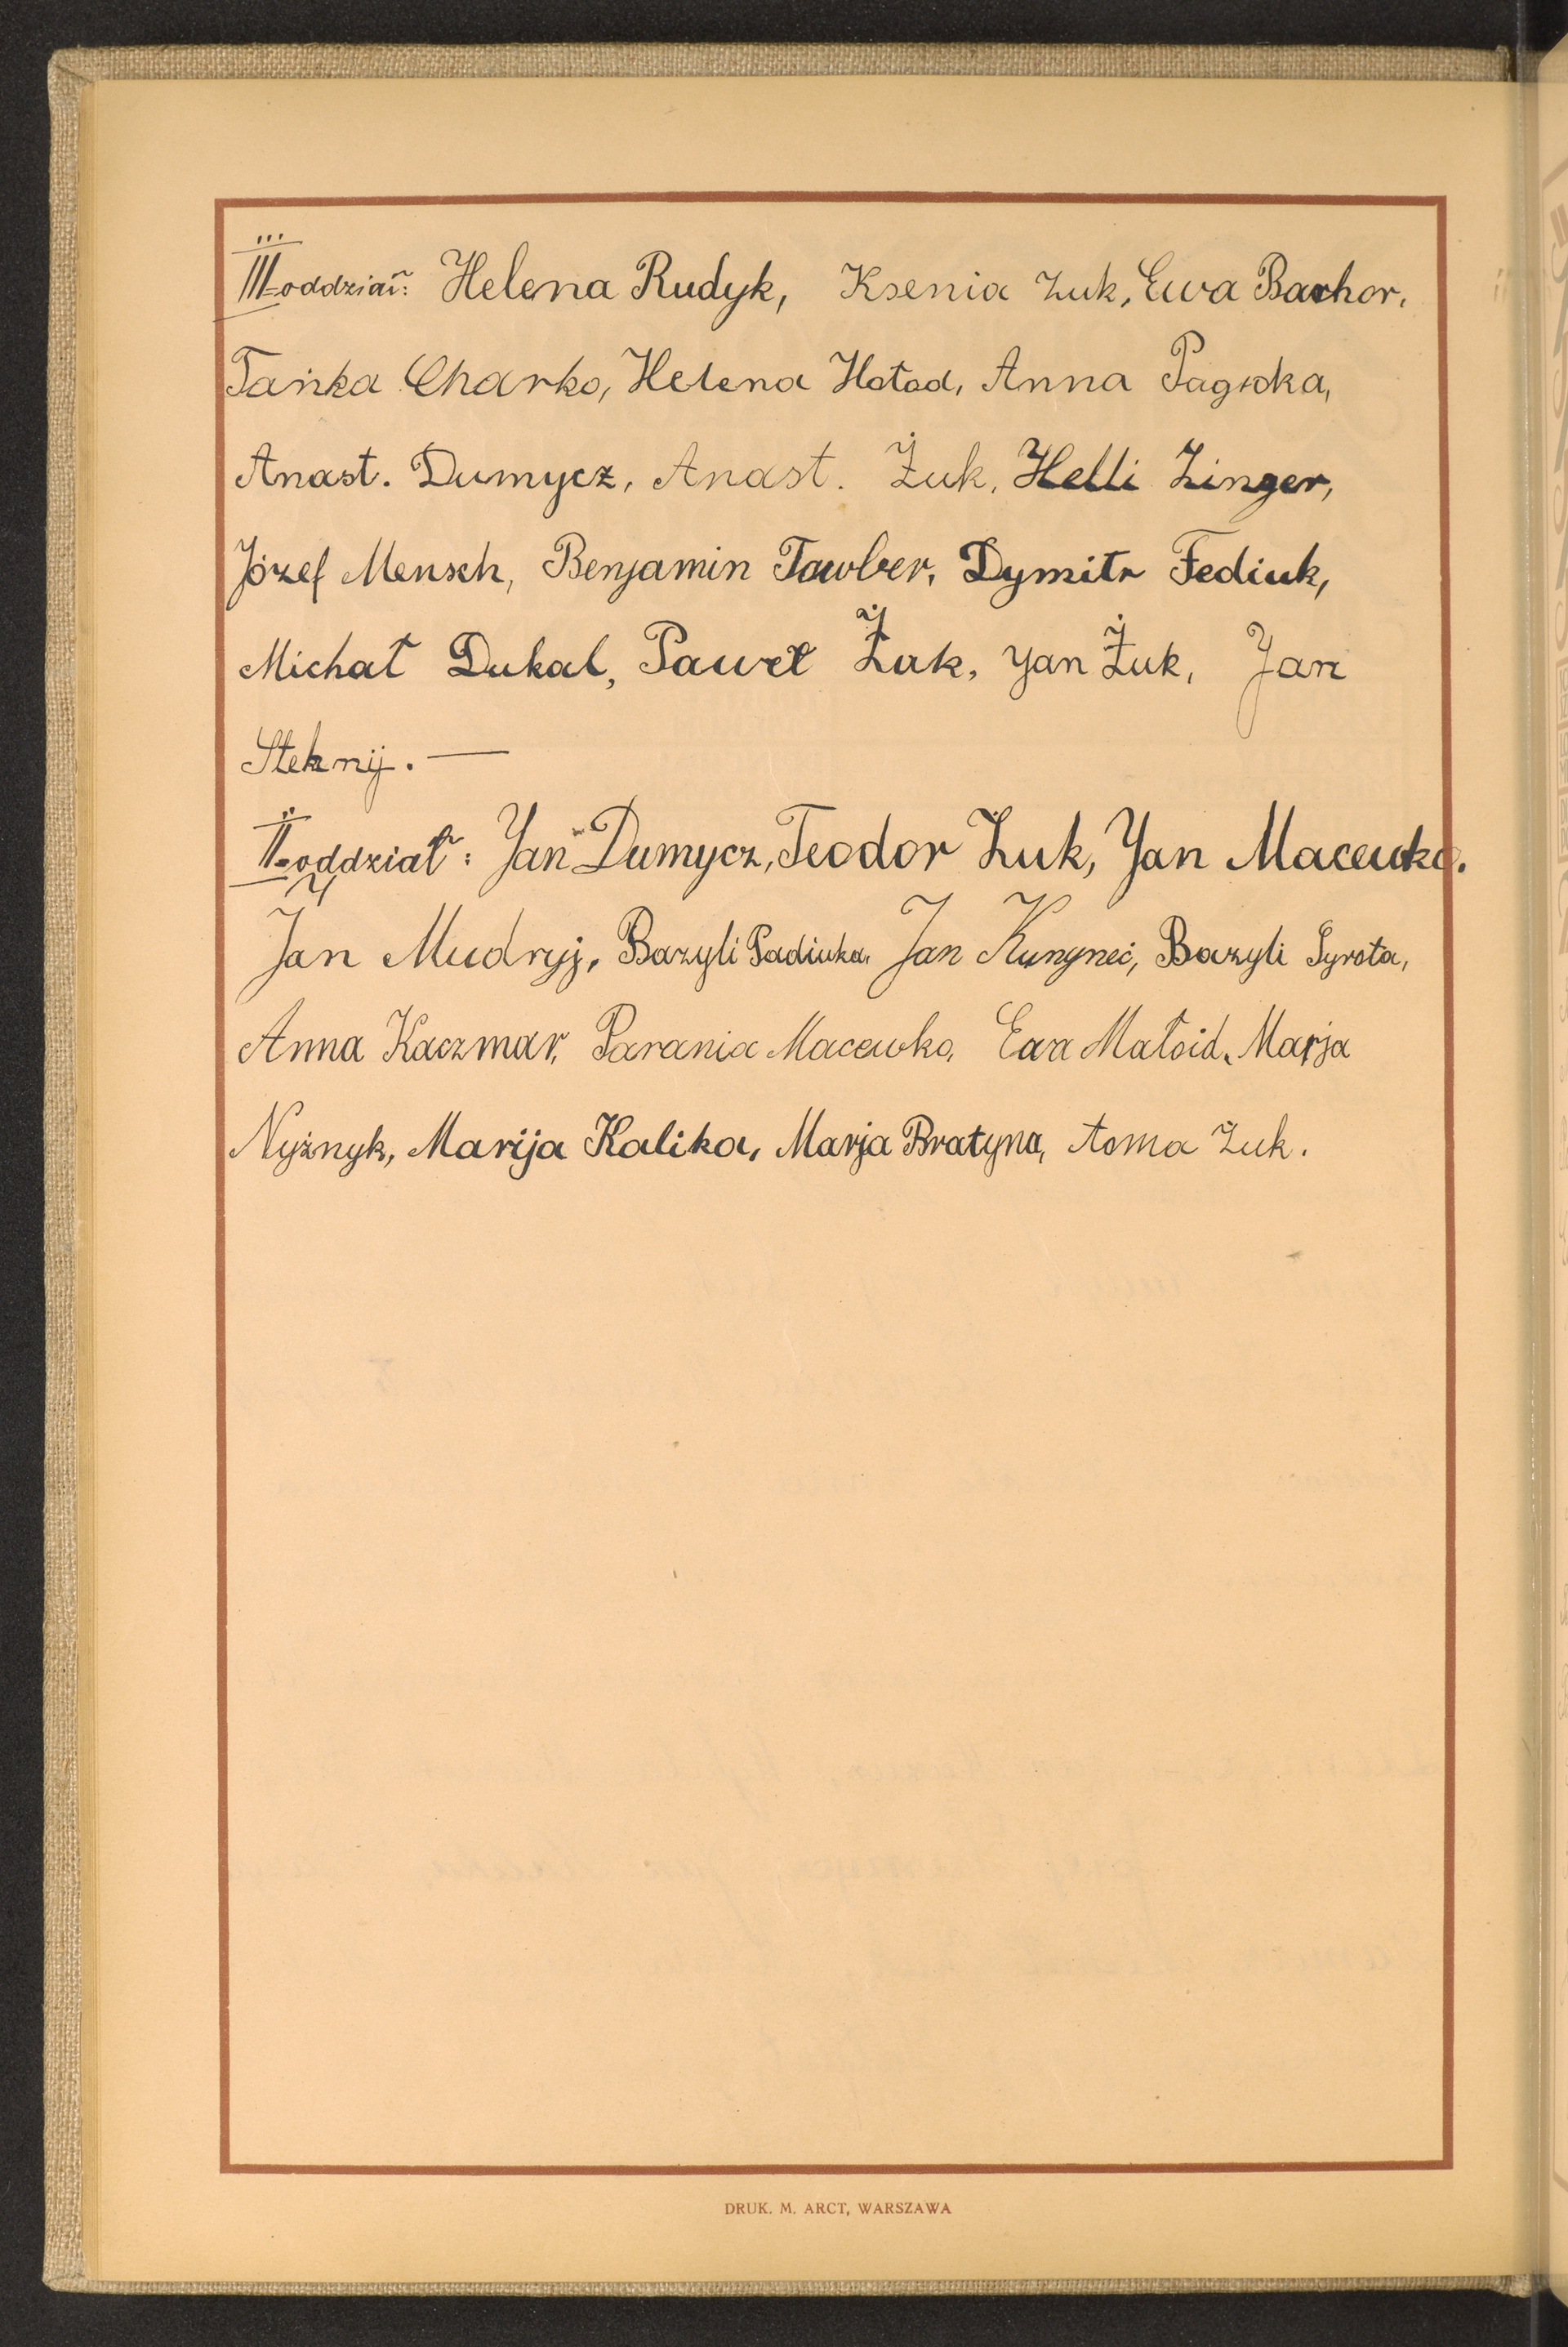 III. oddział: Helena Rudyk, Ksenia Żuk, Ewa Bachor,
Tańka Charko, Helena Hatad, Anna
Anast. Dumycz, Anast. Żuk, Helli Zinger,
Józef Mensch, Benjamin Tawber, Dymitr Fediuk,
Michał Dukal, Paweł Żuk, Yan Żuk, Jan
Steknij. —
II. oddział: Yan Dumycz, Teodor Żuk, Yan Macewko.
Jan Mudryj, Bazyli Padiuka, Jan Bazyli Syrota,
Anna Kaczmar, Parania Macewko, Ewa Małoid, Marja
Nyżnyk, Marija Kalika, Marja Bratyna, Żuk.
DRUK. M. ARCT, WARSZAWA